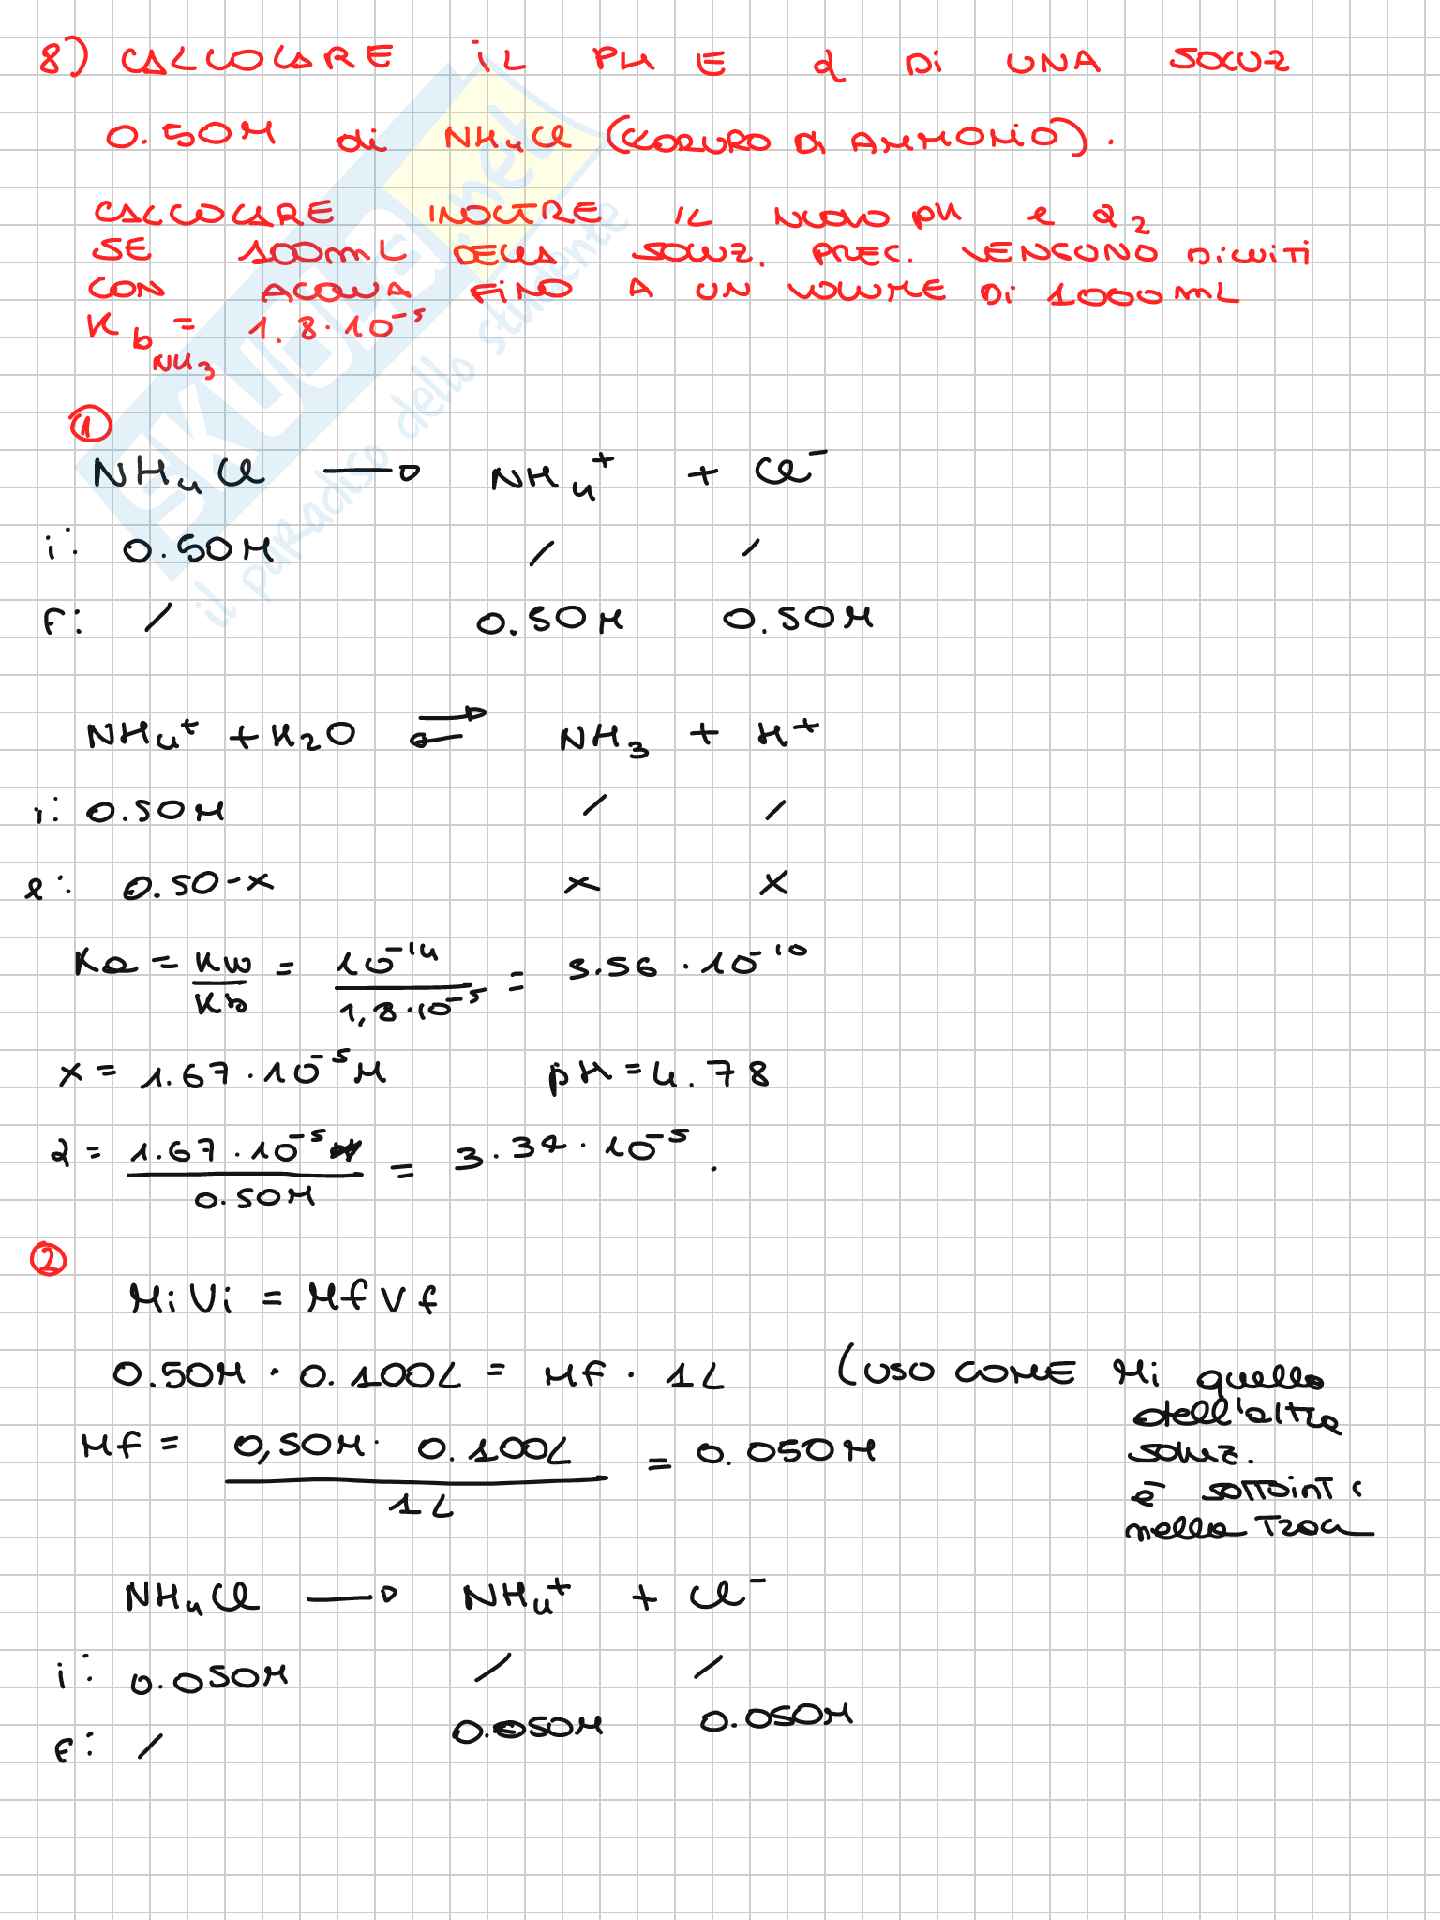 8) CALCOLARE iL PH E α Di UNA SOLUZ
0.50M di NH4Cl (CLORURO Di AMMONiO).
CALCOLARE INOLTRE iL NUOVO pH e α2
SE 100mL DELLA SOLUZ. PREC. VENGONO DiLUiTi
CON ACQUA FiNO A UN VOLUME Di 1000mL
Kb NH3 = 1.8·10⁻⁵
①
NH4Cl → NH4⁺ + Cl⁻
i: 0.50M / /
f: / 0.50M 0.50M
NH4⁺ + H2O ⇌ NH3 + H⁺
i: 0.50M / /
e: 0.50-x x x
Ka = Kw/Kb = 10⁻¹⁴/1,8·10⁻⁵ = 3.56·10⁻¹⁰
x = 1.67·10⁻⁵M pH = 4.78
α = 1.67·10⁻⁵/0.50M = 3.34·10⁻⁵.
②
MiVi = MfVf
0.50M · 0.100L = Mf · 1L (USO COME Mi quello
dell'altra
soluz.
è sottoint
nella
Mf = 0,50M· 0.100L/1L = 0.050M
NH4Cl → NH4⁺ + Cl⁻
i: 0.050M / /
f: / 0.050M 0.050M
SKUOLA.net
il paradiso dello studente